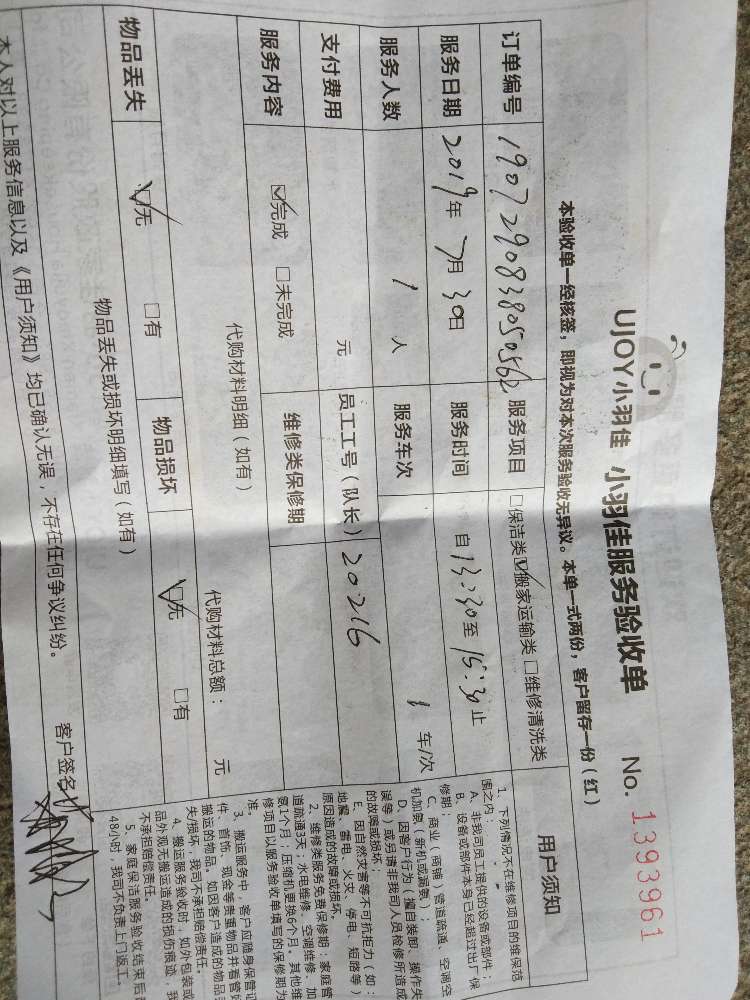 UJOY小羽佳 小羽佳服务验收单 No. 1393961
本验收单一经核签，即视为对本次服务验收无异议。本单一式两份，客户留存一份（红）
订单编号 1907290838050562 服务项目 □保洁类☑搬家运输类 □维修清洗类
服务日期 2019年 7月 30日 服务时间 自 13:30 至 15:30 止
服务人数 1 人 服务车次 1 车/次
支付费用 元 员工工号（队长） 20216
服务内容 ☑完成 □未完成 维修类保修期
代购材料明细（如有） 代购材料总额： 元
物品丢失 ☑无 □有 物品损坏 ☑无 □有
物品丢失或损坏明细填写（如有）
本人对以上服务信息以及《用户须知》均已确认无误，不存在任何争议纠纷。
客户签名
用户须知
1、下列情况不在维修项目的维保范
围之内：
A、非我司员工提供的设备或部件；
B、设备或部件本身已经超过出厂保
修期；
C、商业（商铺）管道疏通、空调空
机加氟（新机或漏氟）；
D、因客户行为（擅自装卸、操作失
误等）或另请非我司人员检修所造成
的故障或损坏
E、因自然灾害等不可抗拒力（如：
地震、雷电、火灾、停电、短路等）
原因造成的故障或损坏。
2、维修类服务免费保修期：家庭管
道疏通3天；水电维修、空调维修、加
氟1个月；压缩机更换6个月，其他维
修项目以服务验收单填写的保修期为
准。
3、搬运服务中，客户应随身保管证
件、首饰、现金等贵重物品并看管
搬运的物品，如因客户造成的物品
失/损坏，我司不承担赔偿责任。
4、搬运服务验收时，如外包装或
品外观无搬运造成的损伤痕迹，我
不承担赔偿责任。
5、家庭保洁服务验收结束后
48小时，我司不负责上门返工。